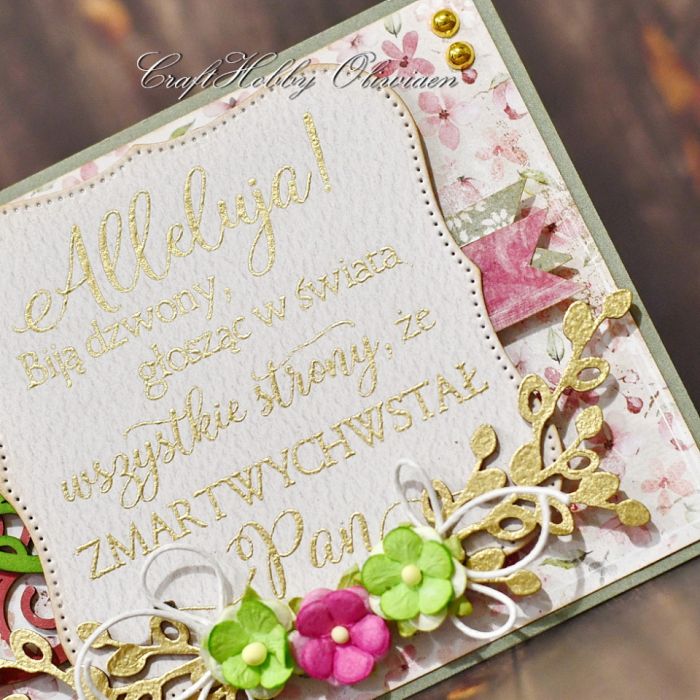 CraftHobby Oliwiaen
Alleluja!
Biją dzwony,
głosząc w świata
wszystkie strony, że
ZMARTWYCHWSTAŁ
Pan